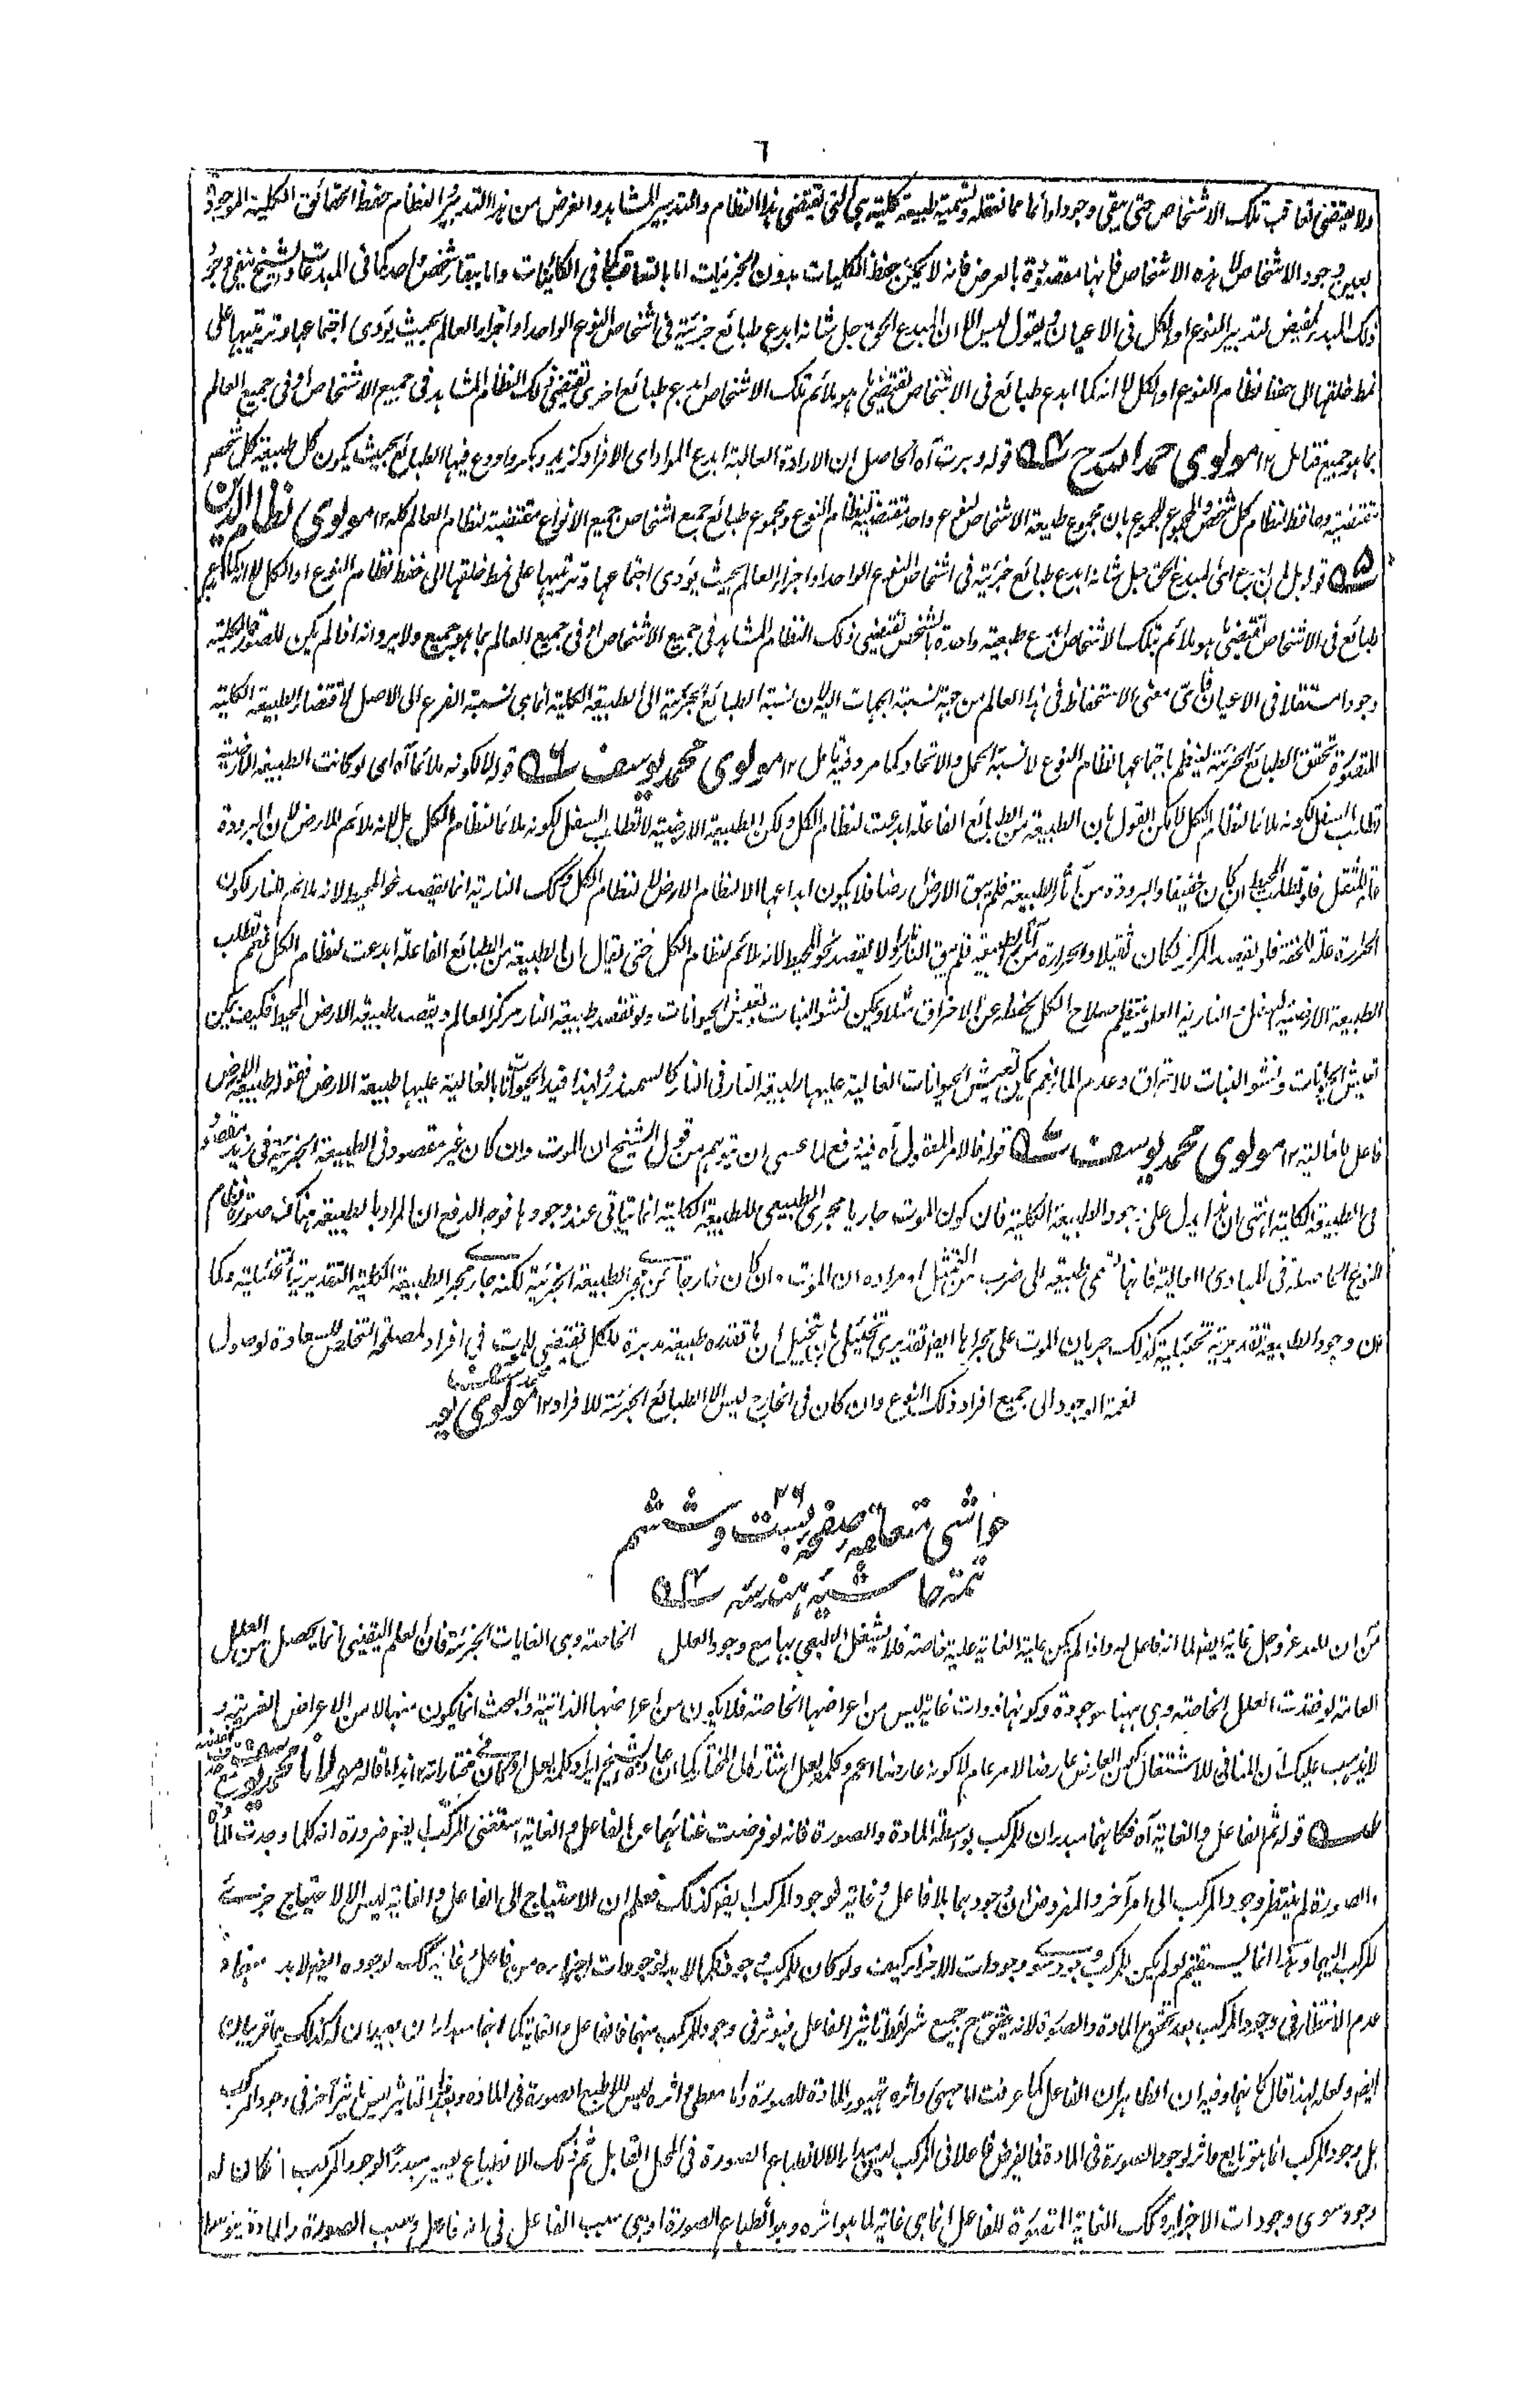 ٦
ولا يقتضى تعاقب تلك الاشخاص حتى يبقى وجودا دائما مما نعقله ونسميه طبيعة كلية هى التى تقتضى هذا النظام والتدبير المشاهد والغرض من هذا التدبير والنظام حفظ الحقائق الكلية الموجودة
بعين وجود الاشخاص لا هذه الاشخاص فانها مقصودة بالعرض فانه لا يمكن حفظ الكليات بدون الجزئيات اما بالتعاقب كما فى الكائنات واما ببقاء شخص واحد كما فى المبدعات والشيخ ينفى وجود
ذلك المبدء المفيض لتدبير النوع او الكل فى الاعيان ويقول ليس الا ان المبدع الحق جل شانه ابدع طبائع جزئية فى اشخاص النوع الواحد او اجزاء العالم بحيث يؤدى اجتماعها وترتيبها على
نمط خلقها الى حفظ نظام النوع او الكل لا انه كما ابدع طبائع فى الاشخاص تقتضى ما هو ملائم تلك الاشخاص ابدع طبائع اخرى تقتضى ذلك النظام المشاهد فى جميع الاشخاص او فى جميع العالم
بما هو جميع فتامل ١٢ مولوى حمد الله قوله دبرت آه الحاصل ان الارادة العالية ابدع المواد اى الافراد كزيد وبكر واودع فيها الطبائع بحيث يكون كل طبيعة كل شخص
مقتضية وحافظة لنظام كل شخص والمجموع للمجموع بان مجموع طبيعة الاشخاص لنوع واحد مقتضية لنظام النوع ومجموع طبائع جميع اشخاص جميع الانواع مقتضية لنظام العالم كله ١٢ مولوى نظام الدين
٥ قوله بل ان ابدع اى المبدع الحق جل شانه ابدع طبائع جزئية فى اشخاص النوع الواحد او اجزاء العالم بحيث يؤدى اجتماعها وترتيبها على نمط خلقها الى حفظ نظام النوع او الكل لا انه كما ابدع
طبائع فى الاشخاص تقتضى ما هو ملائم تلك الاشخاص ابدع طبيعة واحدة بالشخص تقتضى ذلك النظام المشاهد فى جميع الاشخاص او فى جميع العالم بما هو جميع ولا يرد انه اذا لم يكن للصورة الكلية
وجودا مستقلا فى الاعيان فاى معنى الاستحفاظ فى هذا العالم من جهة نسبة الجهات اليه لان نسبة الطبائع الجزئية الى الطبيعة الكلية انما هى نسبة الفرع الى الاصل لاقتضاء الطبيعة الكلية
المتصورة تحقق الطبائع الجزئية لينظم باجتماعها نظام النوع لا نسبة الحمل والاتحاد كما مر وفيه تامل ١٢ مولوى محمد يوسف ٦ قوله لا لكونه ملائما آه اى لو كانت الطبيعة الارضية
تطلب السفل لكونه ملائما لنظام الكل لامكن القول بان الطبيعة من الطبائع الفاعلة ابدعت لنظام الكل ولكن الطبيعة الارضية لا تطلب السفل لكونه ملائما لنظام الكل بل لانه ملائم للارض لان البرودة
علة للثقل فلو تطلب المحيط لكان خفيفا والبرودة من آثار الطبيعة فلم يبق الارض ارضا فلا يكون ابداعها الا لنظام الارض لا لنظام الكل وكك النارية انما يقصد نحو المحيط لانه ملائم للنار لكون
الحرارة علة للخفة فلو تقصد المركز لكان ثقيلا والحرارة من آثار الطبيعة فلم يبق النار نارا ولا يقصد نحو المحيط لانه ملائم لنظام الكل حتى يقال ان الطبيعة من الطبائع الفاعلة ابدعت لنظام الكل نعم تطلب
الطبيعة الارضية السفل والنارية العلو فينتظم صلاح الكل بحفظه عن الاحتراق مثلا ويمكن نشو النبات وتعيش الحيوانات ولو تقصد طبيعة النار مركز العالم ويقصد طبيعة الارض المحيط فكيف يمكن
تعيش الحيوانات ونشو النبات للاحتراق وعدم الماء نعم يمكن تعيش الحيوانات الغالبة عليها طبيعة النار فى النار كالسمندر ولهذا قيد الحيوانات بالغالبة عليها طبيعة الارض فقوله طبيعة الارض
فاعل بالغالبة ١٢ مولوى محمد يوسف قوله فالامر المقول آه فيه دفع لما عسى ان يتوهم من قول الشيخ ان الموت وان كان غير مقصود فى الطبيعة الجزئية فى زيد مقصود
فى الطبيعة الكلية انتهى ان هذا يدل على وجود الطبيعة الكلية فان كون الموت جاريا مجرى الطبيعى للطبيعة الكلية انما يتاتى عند وجودها فوجه الدفع ان المراد بالطبيعة هناك صورة نظام
النوع الحاصلة فى المبادى العالية فانها تسمى طبيعة الى ضرب من التمثيل او مراده ان الموت وان كان خارجا عن مجرى الطبيعة الجزئية لكنه جار مجرى الطبيعة الكلية التقديرية التخئيلية وكما
ان وجود الطبيعة تقديرية تخئيلية كذلك جريان الموت على مجراها ايضا تقديرى تخئيلى بان يتخيل ان ما تقدره طبيعة مدبرة للكل تقتضى الموت فى افراد لمصلحة التخلص للسعادة لوصول
نعمة الوجود الى جميع افراد ذلك النوع وان كان فى الخارج ليس الا الطبائع الجزئية للافراد ١٢ مولوى
حواشى متعلقه صفحه بست وششم ٢٦
تتمه حاشيه هندسه
من ان لله عز وجل غاية ايضا لما انه فاعل له واذا لم يكن علية الغاية علية خاصة فلا يشغل الطبيعى بها مع وجود العلل الخاصة وهى الغايات الجزئية فان العلم اليقينى انما يحصل من العلل
العامة لو فقدت العلل الخاصة وهى ههنا موجودة وكونها ذوات غاية ليس من اعراضها الخاصة فلا يكون من اعراضها الذاتية والبحث انما يكون منها لا من الاعراض الغريبة و
لا يذهب عليك ان المنافى للاشتغال كون العارض عارضا لامر عام لا كونه عارضا اعم وكلمة لعل اشارة الى المختار كما ان عادة الشيخ ايراد كلمة لعل فى مختاراته ١٢ هذا ما قاله مولانا محمد يوسف
قوله ثم الفاعل والغاية آه فكانهما مبدءان للمركب بواسطة المادة والصورة فانه لو فرضت غنائهما عن الفاعل والغاية استغنى المركب ايضا ضرورة انه كلما وجدت المادة
والصورة لم ينتظر وجود المركب الى امر آخر والمفروض ان وجودهما بلا فاعل وغاية فوجود المركب ايضا كذلك فعلم ان الاحتياج الى الفاعل والغاية ليس الا لاحتياج جزئى
المركب اليهما وهذا انما يستقيم لو لم يكن للمركب وجود سوى وجودات الاجزاء ولو كان للمركب وجود فكما لا بد لوجودات اجزائه من فاعل وغاية كك لوجوده ايضا لا بد منهما و
عدم الانتظار فى وجود المركب بعد تحقق المادة والصورة لانه يتحقق ح جميع شرائط تاثير الفاعل فيوثر فى وجود المركب منهما فالفاعل والغاية كما انهما مبدءان بعيدان له كذلك هما قريبان
ايضا ولعله لهذا قال كانهما وفيه ان الظاهر ان الفاعل كما عرفت اما مهيئ واثره تهيؤ المادة للصورة واما معطى واثره ليس الا طبع الصورة فى المادة وبعد هذا التاثير ليس تاثير آخر فى وجود المركب
بل وجود المركب انما هو تابع واثر لوجود الصورة فى المادة فما يفرض فاعلا فى المركب ليس مبدء الا لانطباع الصورة فى المحل القابل ثم ذلك الانطباع يصير مبدءا لوجود المركب ان كان له
وجود سوى وجودات الاجزاء وكك الغاية المتصورة للفاعل انما هى غاية لما هو اثره وهو انطباع الصورة اذ هى سبب الفاعل فى انه فاعل وسبب الصورة والمادة بتوسط